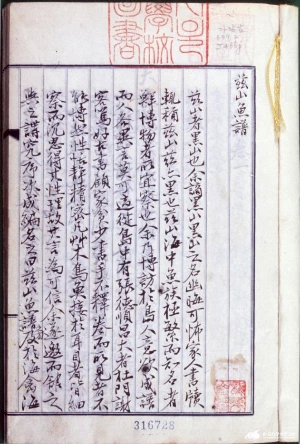 玆山魚譜
玆山者黑山也余謫黑山黑山之名幽晦可怖家人書牘
輒稱玆山玆亦黑也玆山海中魚族極繁而知名者
鮮博物者所宜察也余乃博訪於島人意欲成譜
而人各異言莫可適從島中有張德順昌大者杜門謝
客篤好古書顧家貧少書手不釋卷而所見者不
能博然性恬靜精密凡艸木鳥魚接於耳目者皆細
察而沈思得其性理故其言爲可信余遂邀而館之
與之講究序次成編名之曰玆山魚譜旁及於海禽海
316728